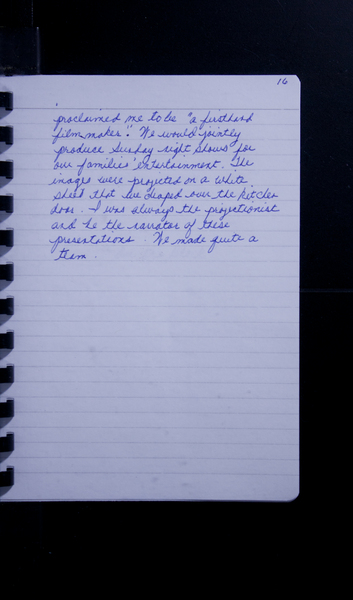 16
proclaimed me to be "a firsthand
film maker." We would jointly
produce Sunday night shows for
our families' entertainment. The
images were projected on a white
sheet that we draped over the kitchen
door. I was always the projectionist
and he the narrator of these
presentations. We made quite a
team.